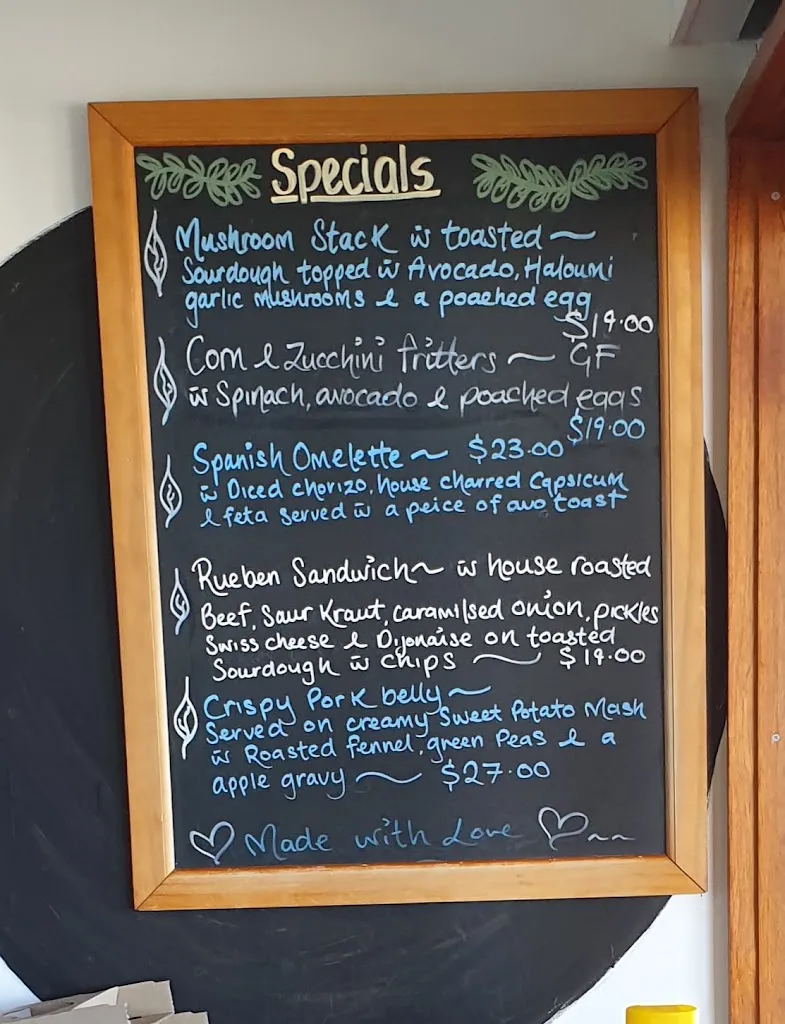 Specials
Mushroom Stack w toasted ~
Sourdough topped w Avocado, Haloumi
garlic mushrooms & a poached egg
$19.00
Corn & Zucchini fritters ~ GF
w Spinach, avocado & poached eggs
$19.00
Spanish Omelette ~ $23.00
w Diced chorizo, house charred Capsicum
& feta served w a peice of avo toast
Rueben Sandwich ~ w house roasted
Beef, Saur Kraut, caramilsed onion, pickles
Swiss cheese & Dijonaise on toasted
Sourdough w chips ~ $19.00
Crispy Pork belly ~
Served on creamy Sweet Potato Mash
w Roasted fennel, green Peas & a
apple gravy ~ $27.00
♡ Made with Love ♡ ~~